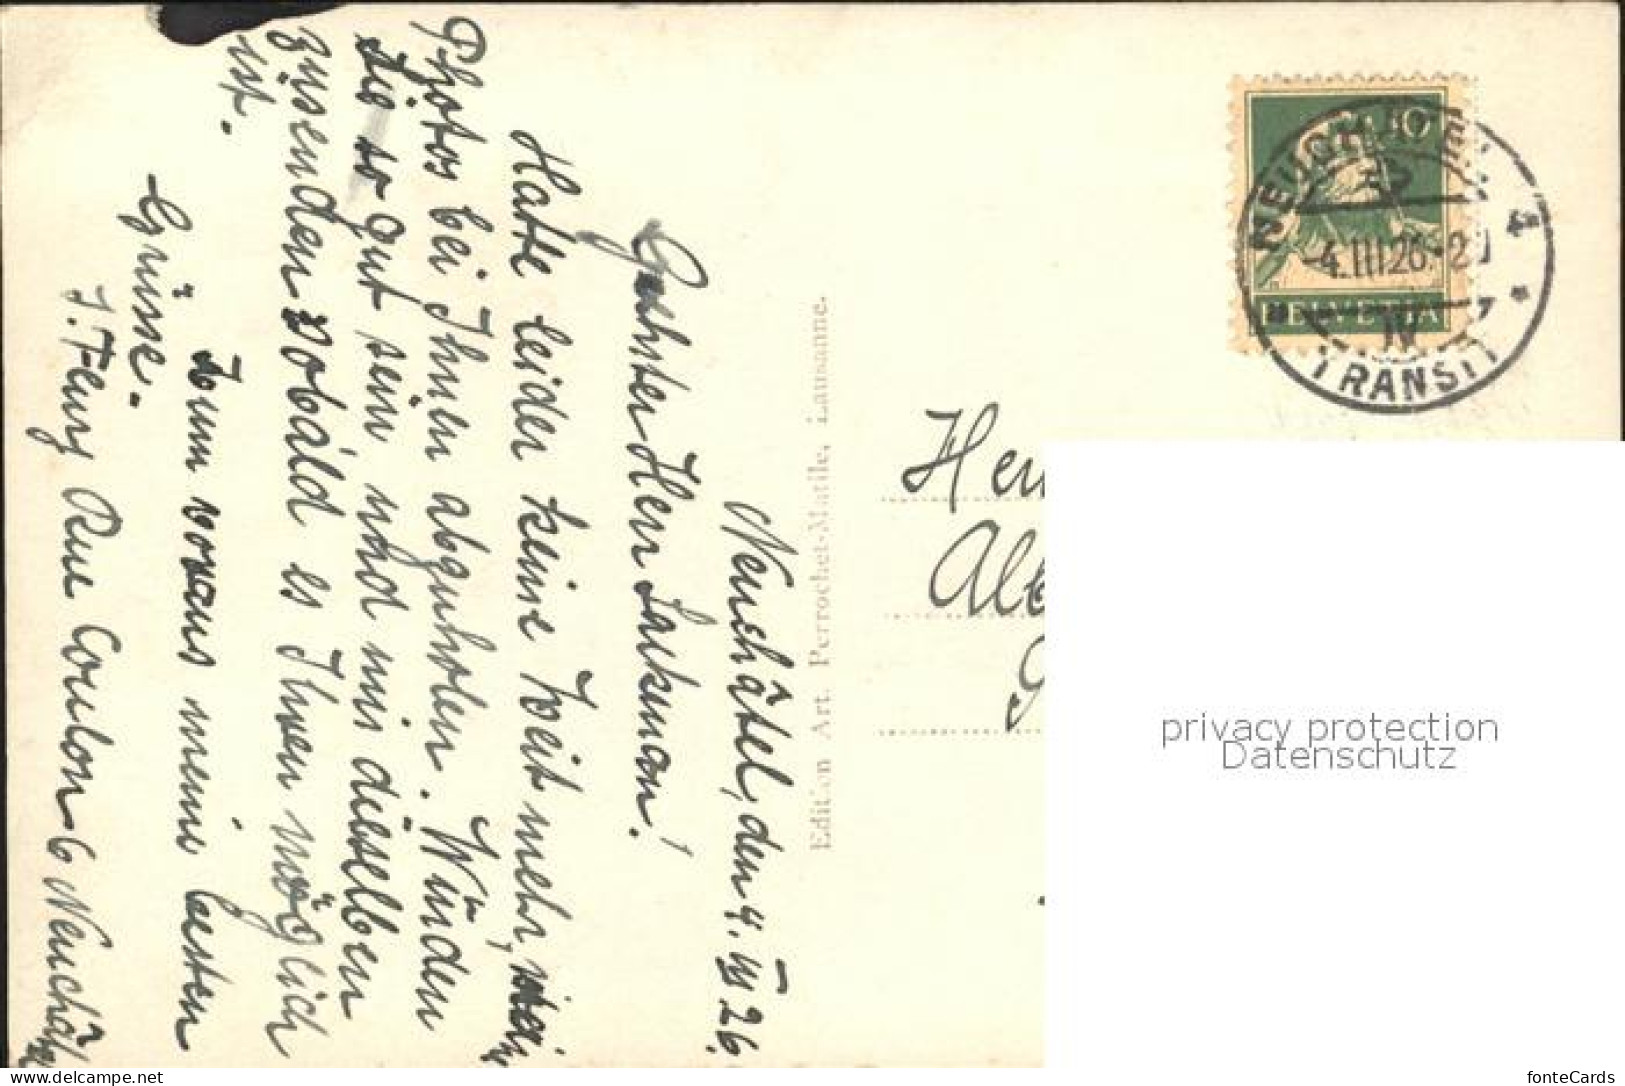 Neuchâtel, den 4. III 26.
Geehrter Herr
Hatte leider keine Zeit mehr,
Photos bei Ihnen abzuholen. Würden
Sie so gut sein und mir dieselben
zusenden sobald es Ihnen möglich
ist.
Zum voraus meine besten
Grüsse.
Rue Coulon 6 Neuchâtel
Edition Art. Perrochet-Matile, Lausanne.
10
HELVETIA
NEUCHATEL
-4.III.26.-2
IV
TRANSIT
Herr
Alb
privacy protection
Datenschutz
www.delcampe.net
fonteCards